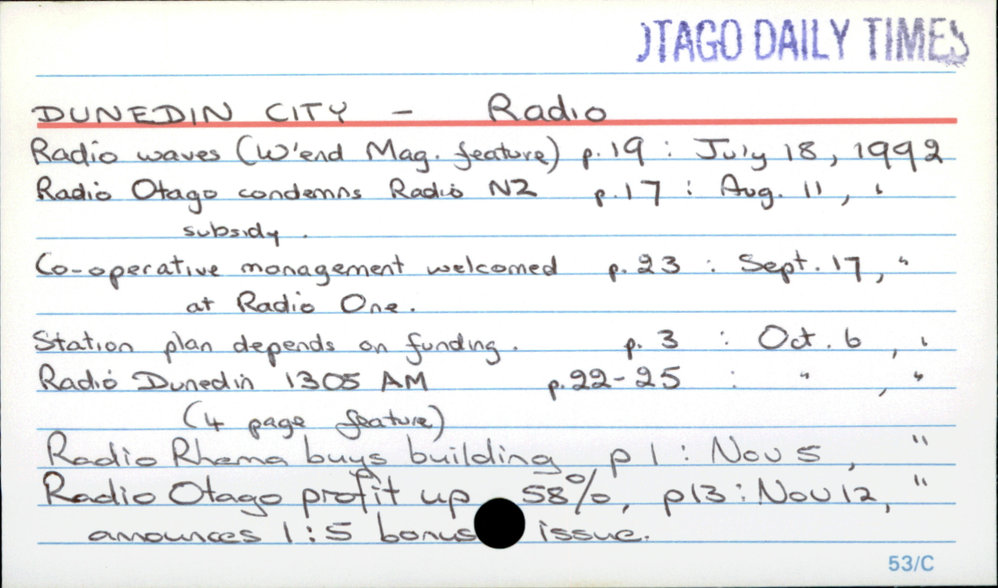 OTAGO DAILY TIMES
DUNEDIN CITY - Radio
Radio waves (W'end Mag. feature) p.19 : July 18, 1992
Radio Otago condemns Radio NZ p.17 : Aug. 11, "
subsidy.
Co-operative management welcomed p.23 : Sept. 17, "
at Radio One.
Station plan depends on funding. p. 3 : Oct. 6, "
Radio Dunedin 1305 AM p.22-25 : " , "
(4 page feature)
Radio Rhema buys building p1 : Nov 5, "
Radio Otago profit up 58%, p13 : Nov 12, "
announces 1:5 bonus issue.
53/C